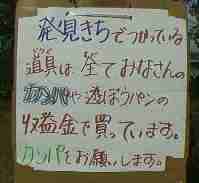 発見きちでつかっている
道具は全てみなさんの
カンパや遊ぼうパンの
収益金で買っています。
カンパをお願いします。